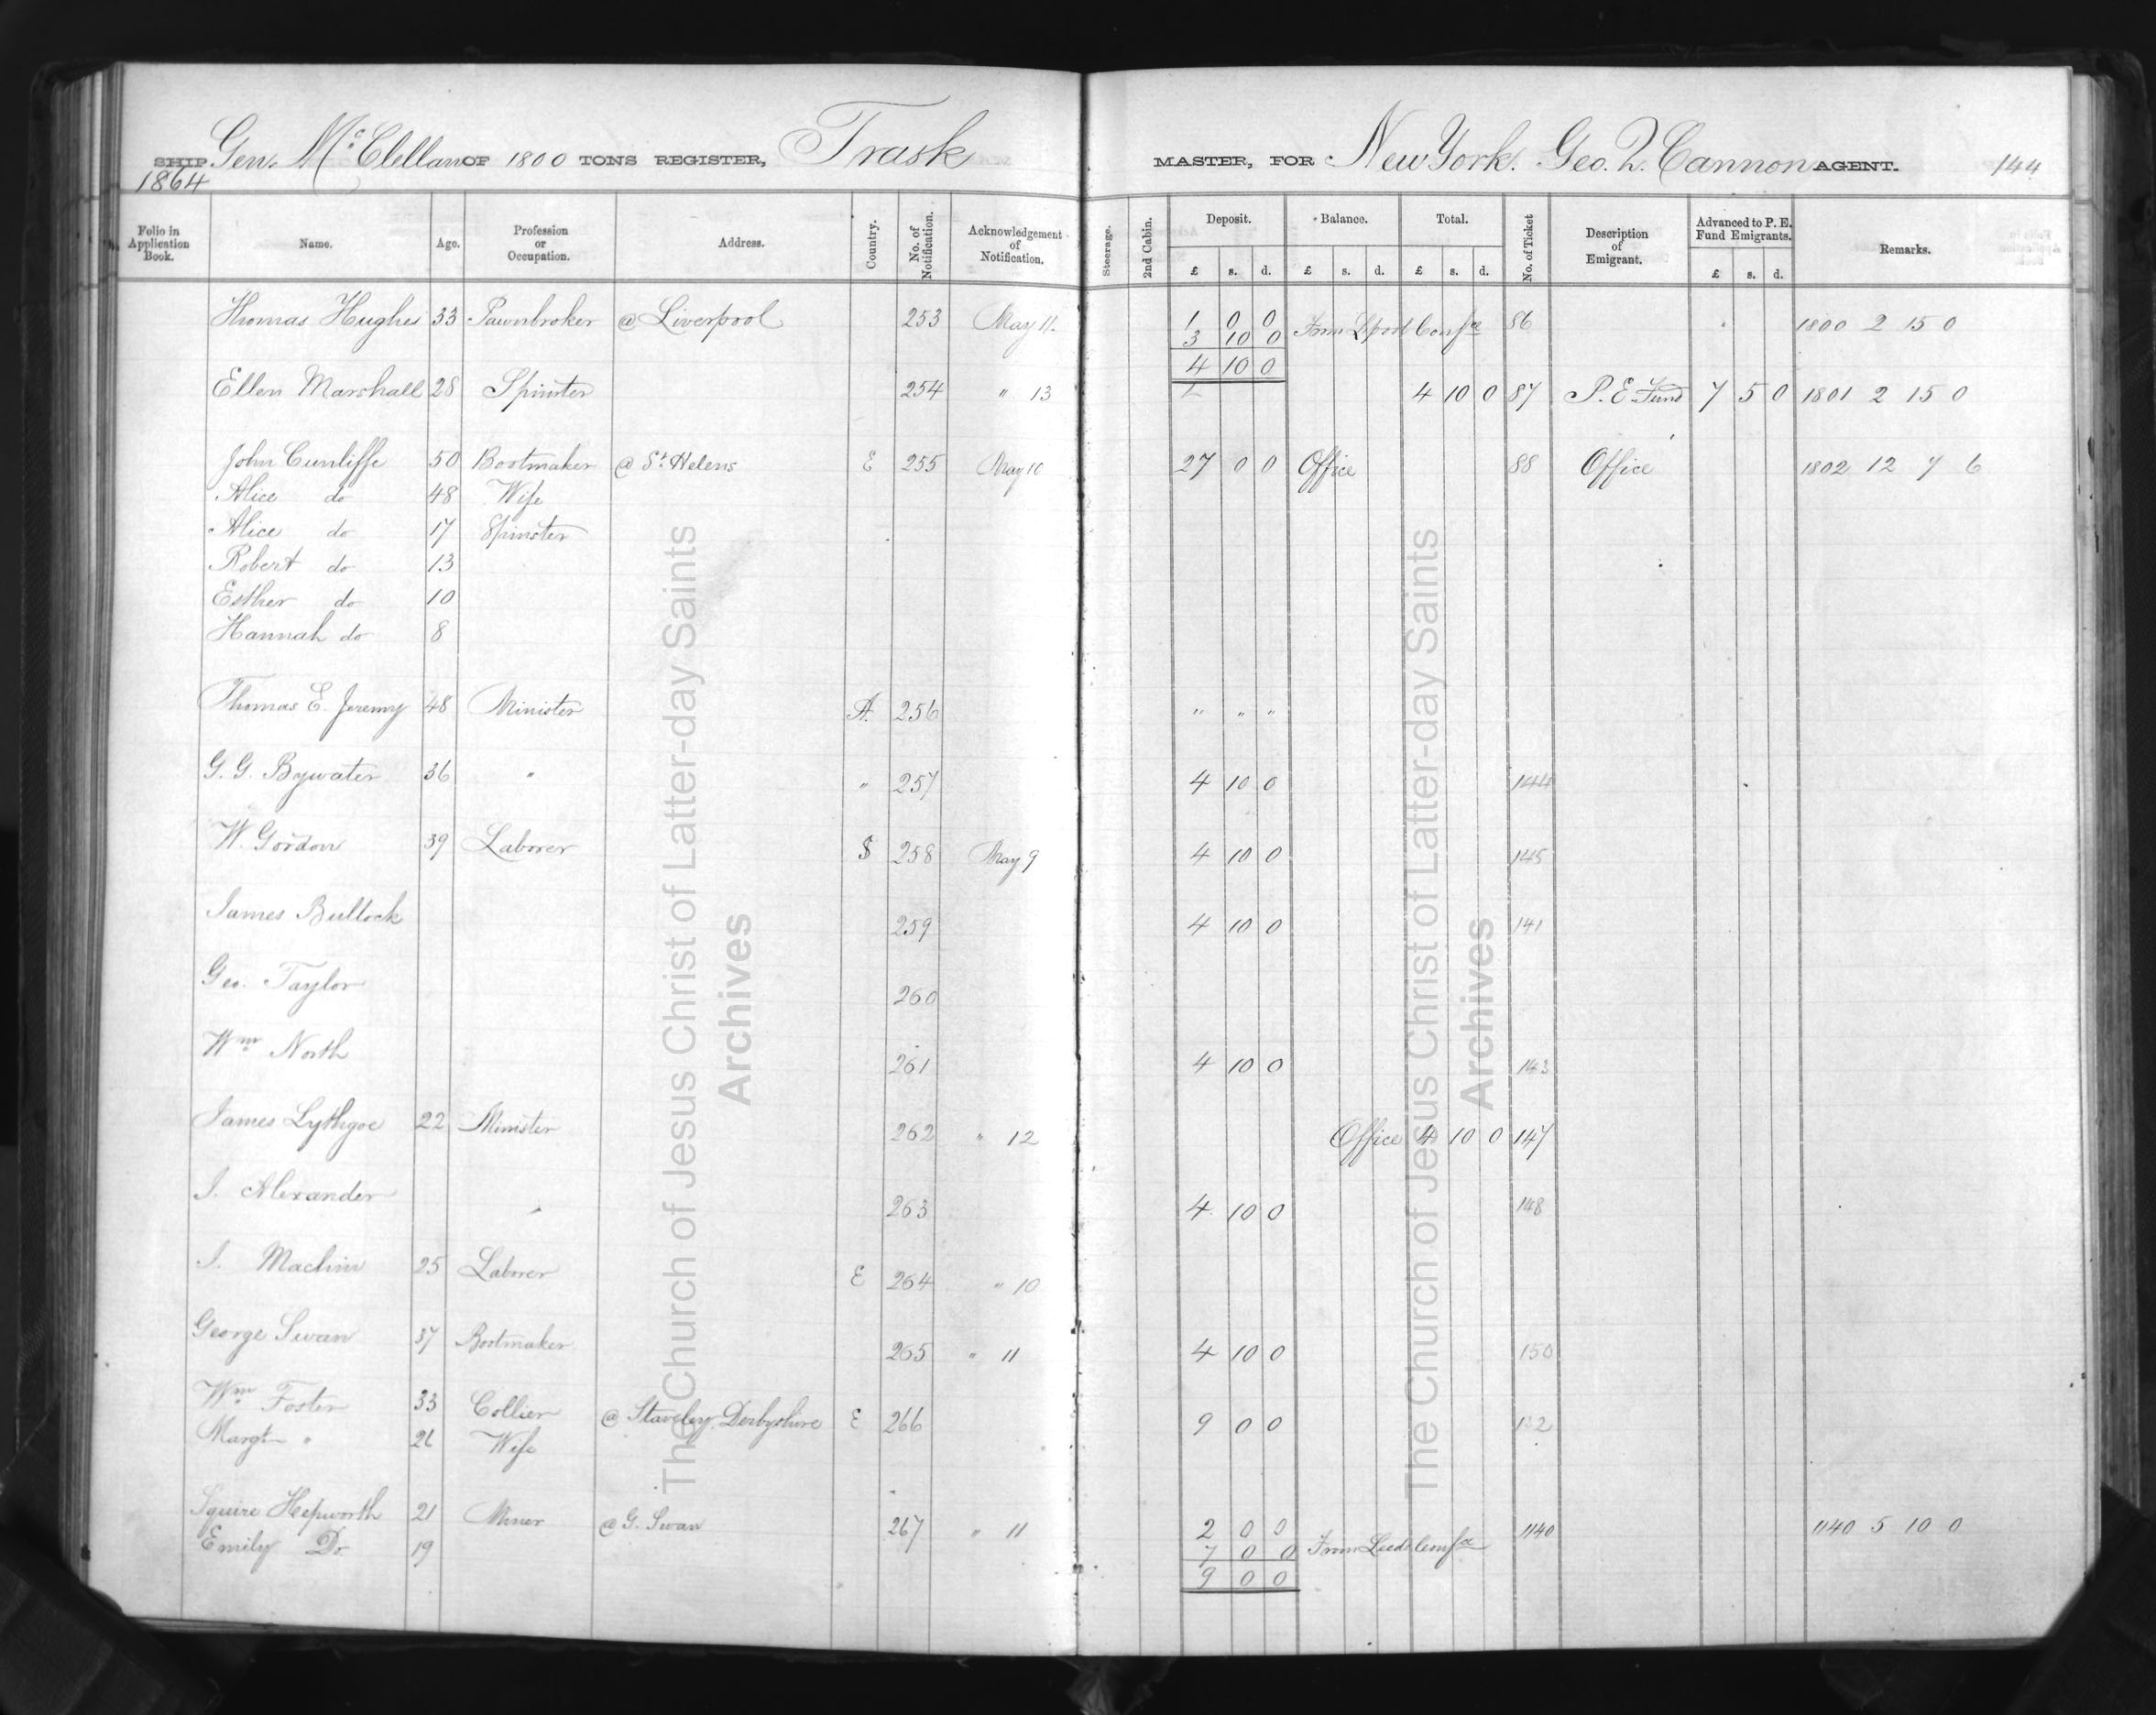 SHIP Gen. Mc.Clellan OF 1800 TONS REGISTER, Trask MASTER, FOR New York. Geo. Q. Cannon AGENT. 144
1864
Folio in Application Book. Name. Age. Profession or Occupation. Address. Country. No. of Notification. Acknowledgement of Notification. Steerage. 2nd Cabin. Deposit. Balance. Total. No. of Ticket Description of Emigrant. Advanced to P. E. Fund Emigrants. Remarks.
£ s. d. £ s. d. £ s. d. £ s. d.
Thomas Hughes 33 Pawnbroker @ Liverpool 253 May 11. 1 0 0 From Lpool Confce 86 1800 2 15 0
3 10 0
4 10 0
Ellen Marshall 28 Spinster 254 " 13 4 10 0 87 P. E. Fund 7 5 0 1801 2 15 0
John Cunliffe 50 Bootmaker @ St. Helens E 255 May 10 27 0 0 Office 88 Office 1802 12 7 6
Alice do 48 Wife
Alice do 17 Spinster
Robert do 13
Esther do 10
Hannah do 8
Thomas E. Jeremy 48 Minister A. 256 " " "
G. G. Bywater 36 " " 257 4 10 0 144
W. Gordon 39 Laborer S 258 May 9 4 10 0 145
James Bullock 259 4 10 0 141
Geo. Taylor 260
Wm North 261 4 10 0 143
James Lythgoe 22 Minister 262 " 12 Office 4 10 0 147
J. Alexander 263 4 10 0 148
J. Machin 25 Laborer E 264 " 10
George Swan 37 Bootmaker 265 " 11 4 10 0 150
Wm Foster 33 Collier @ Staveley Derbyshire E 266 9 0 0
Margt " 26 Wife
Squire Hepworth 21 Miner @ G. Swan 267 " 11 2 0 0 1140 1140 5 10 0
Emily Do. 19 7 0 0 From Leeds Confce
9 0 0
The Church of Jesus Christ of Latter-day Saints
Archives
The Church of Jesus Christ of Latter-day Saints
Archives